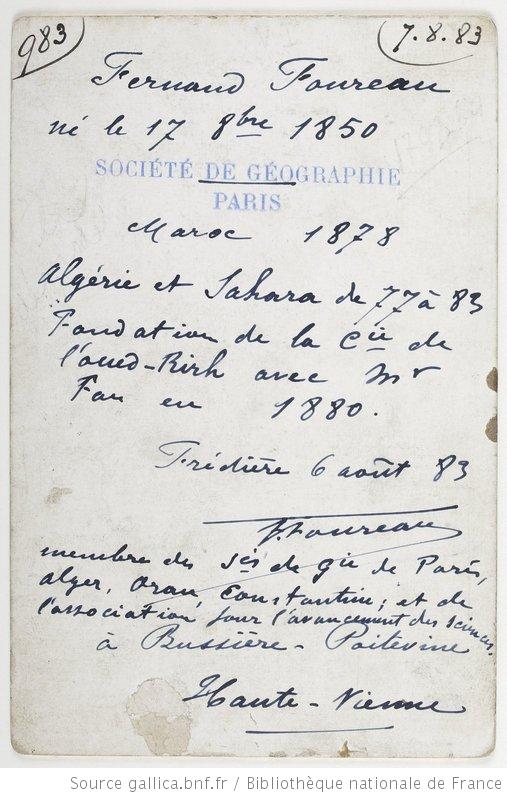 983
7.8.83
Fernand Foureau
né le 17 8bre 1850
SOCIÉTÉ DE GÉOGRAPHIE
PARIS
Maroc 1878
Algérie et Sahara de 77 à 83
Fondation de la Cie de
l'oued-Rirh avec Mr
Fau en 1880.
Frédière 6 août 83
F. Foureau
membre des Stés de gie de Paris,
Alger, Oran, Constantine; et de
l'association pour l'avancement des sciences.
à Bussière-Poitevine
Haute-Vienne
Source gallica.bnf.fr / Bibliothèque nationale de France